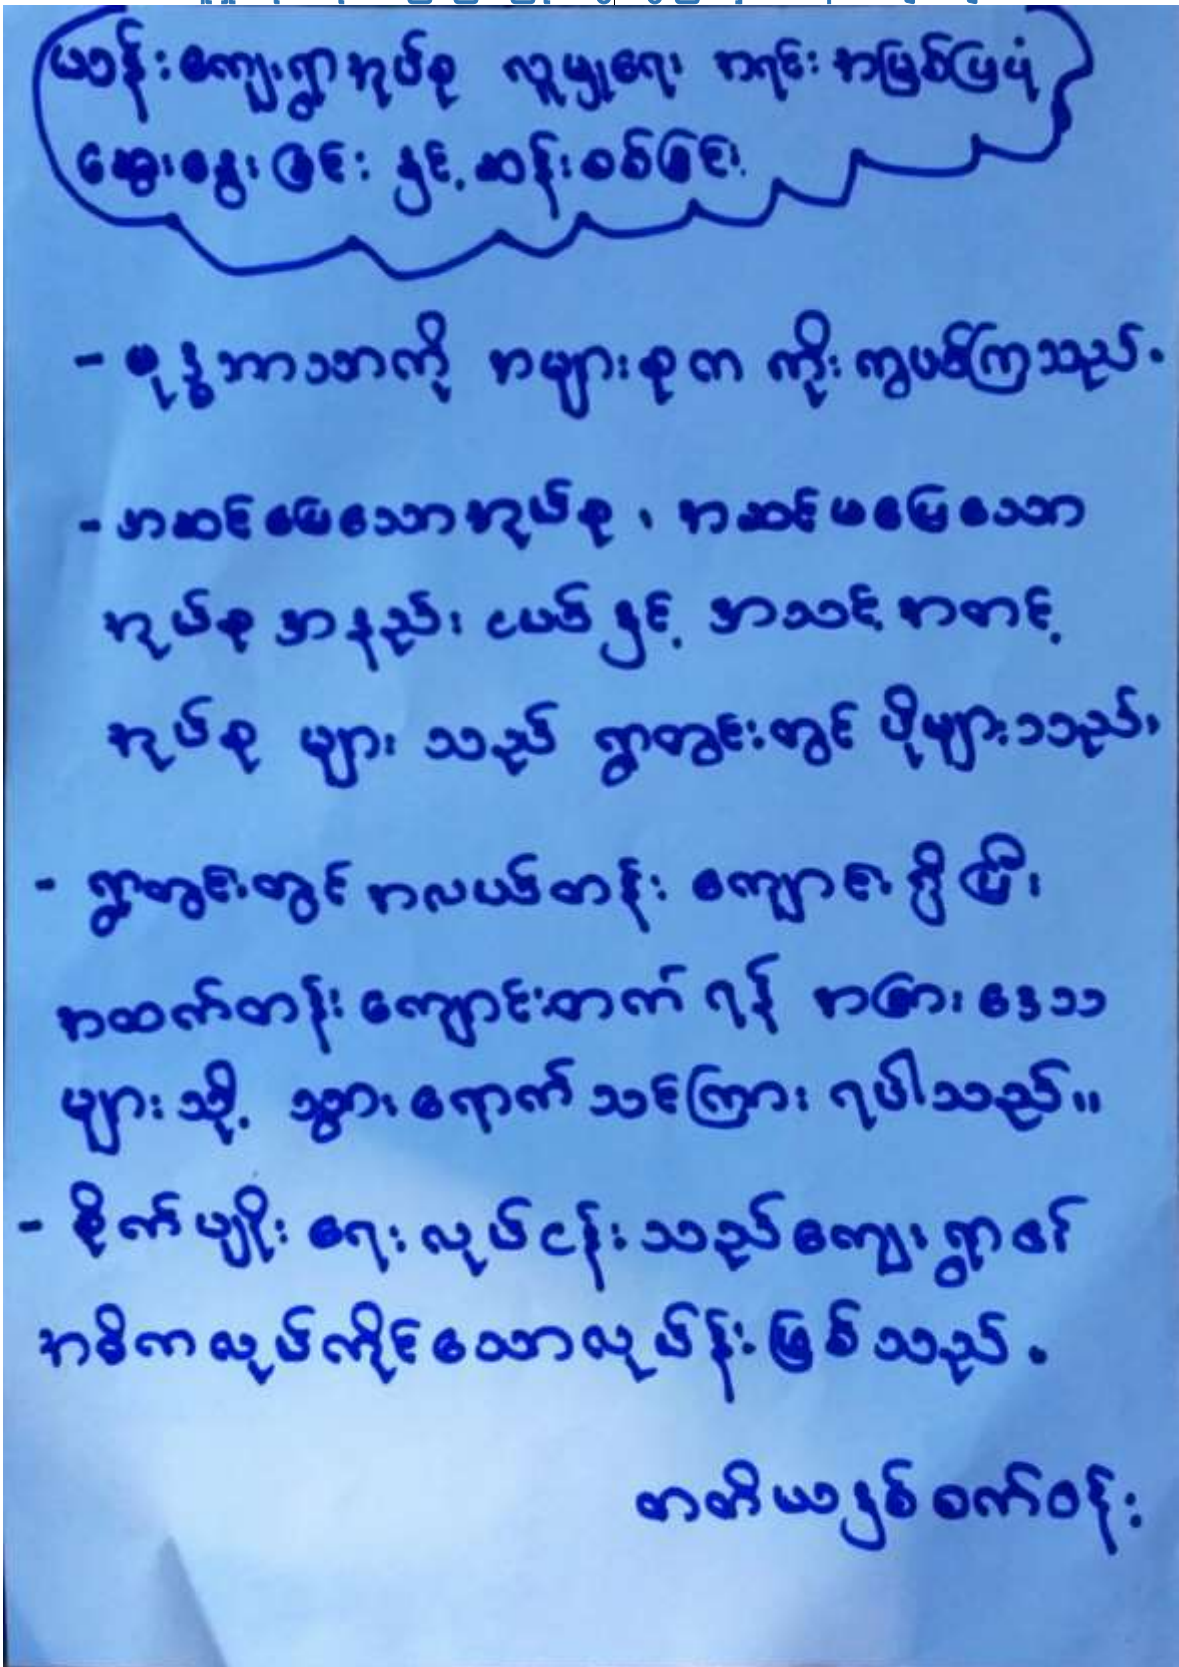 ယဝန်းကျေးရွာအုပ်စု လူမှုရေး အရင်းအမြစ်ပြပုံ
ဆွေးနွေးခြင်း နှင့် ဆန်းစစ်ခြင်း
- ဗုဒ္ဓဘာသာကို အများစုက ကိုးကွယ်ကြသည်။
- အဆင်ပြေသောအုပ်စု ၊ အဆင်မပြေသော
အုပ်စု အနည်းငယ် နှင့် အသင့်အတင့်
အုပ်စု များ သည် ရွာတွင်းတွင် ပိုများသည်၊
- ရွာတွင်းတွင် အလယ်တန်း ကျောင်း ရှိပြီး
အထက်တန်း ကျောင်းတက် ရန် အခြား ဒေသ
များသို့ သွားရောက် သင်ကြား ရပါသည်။
- စိုက်ပျိုးရေးလုပ်ငန်းသည် ကျေးရွာ၏
အဓိကလုပ်ကိုင်သောလုပ်န်းဖြစ်သည်။
တတိယနှစ် စက်ဝန်း